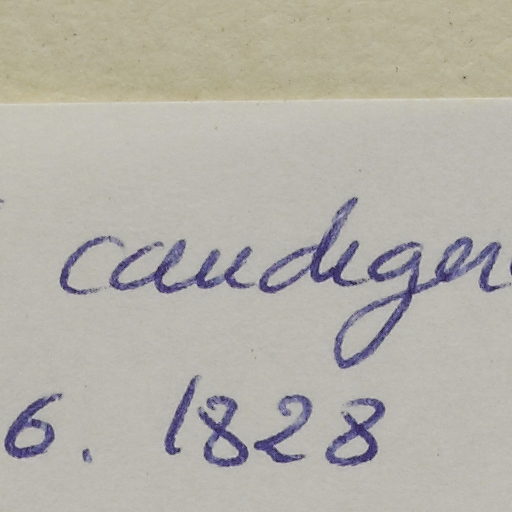 caudiger
6. 1828